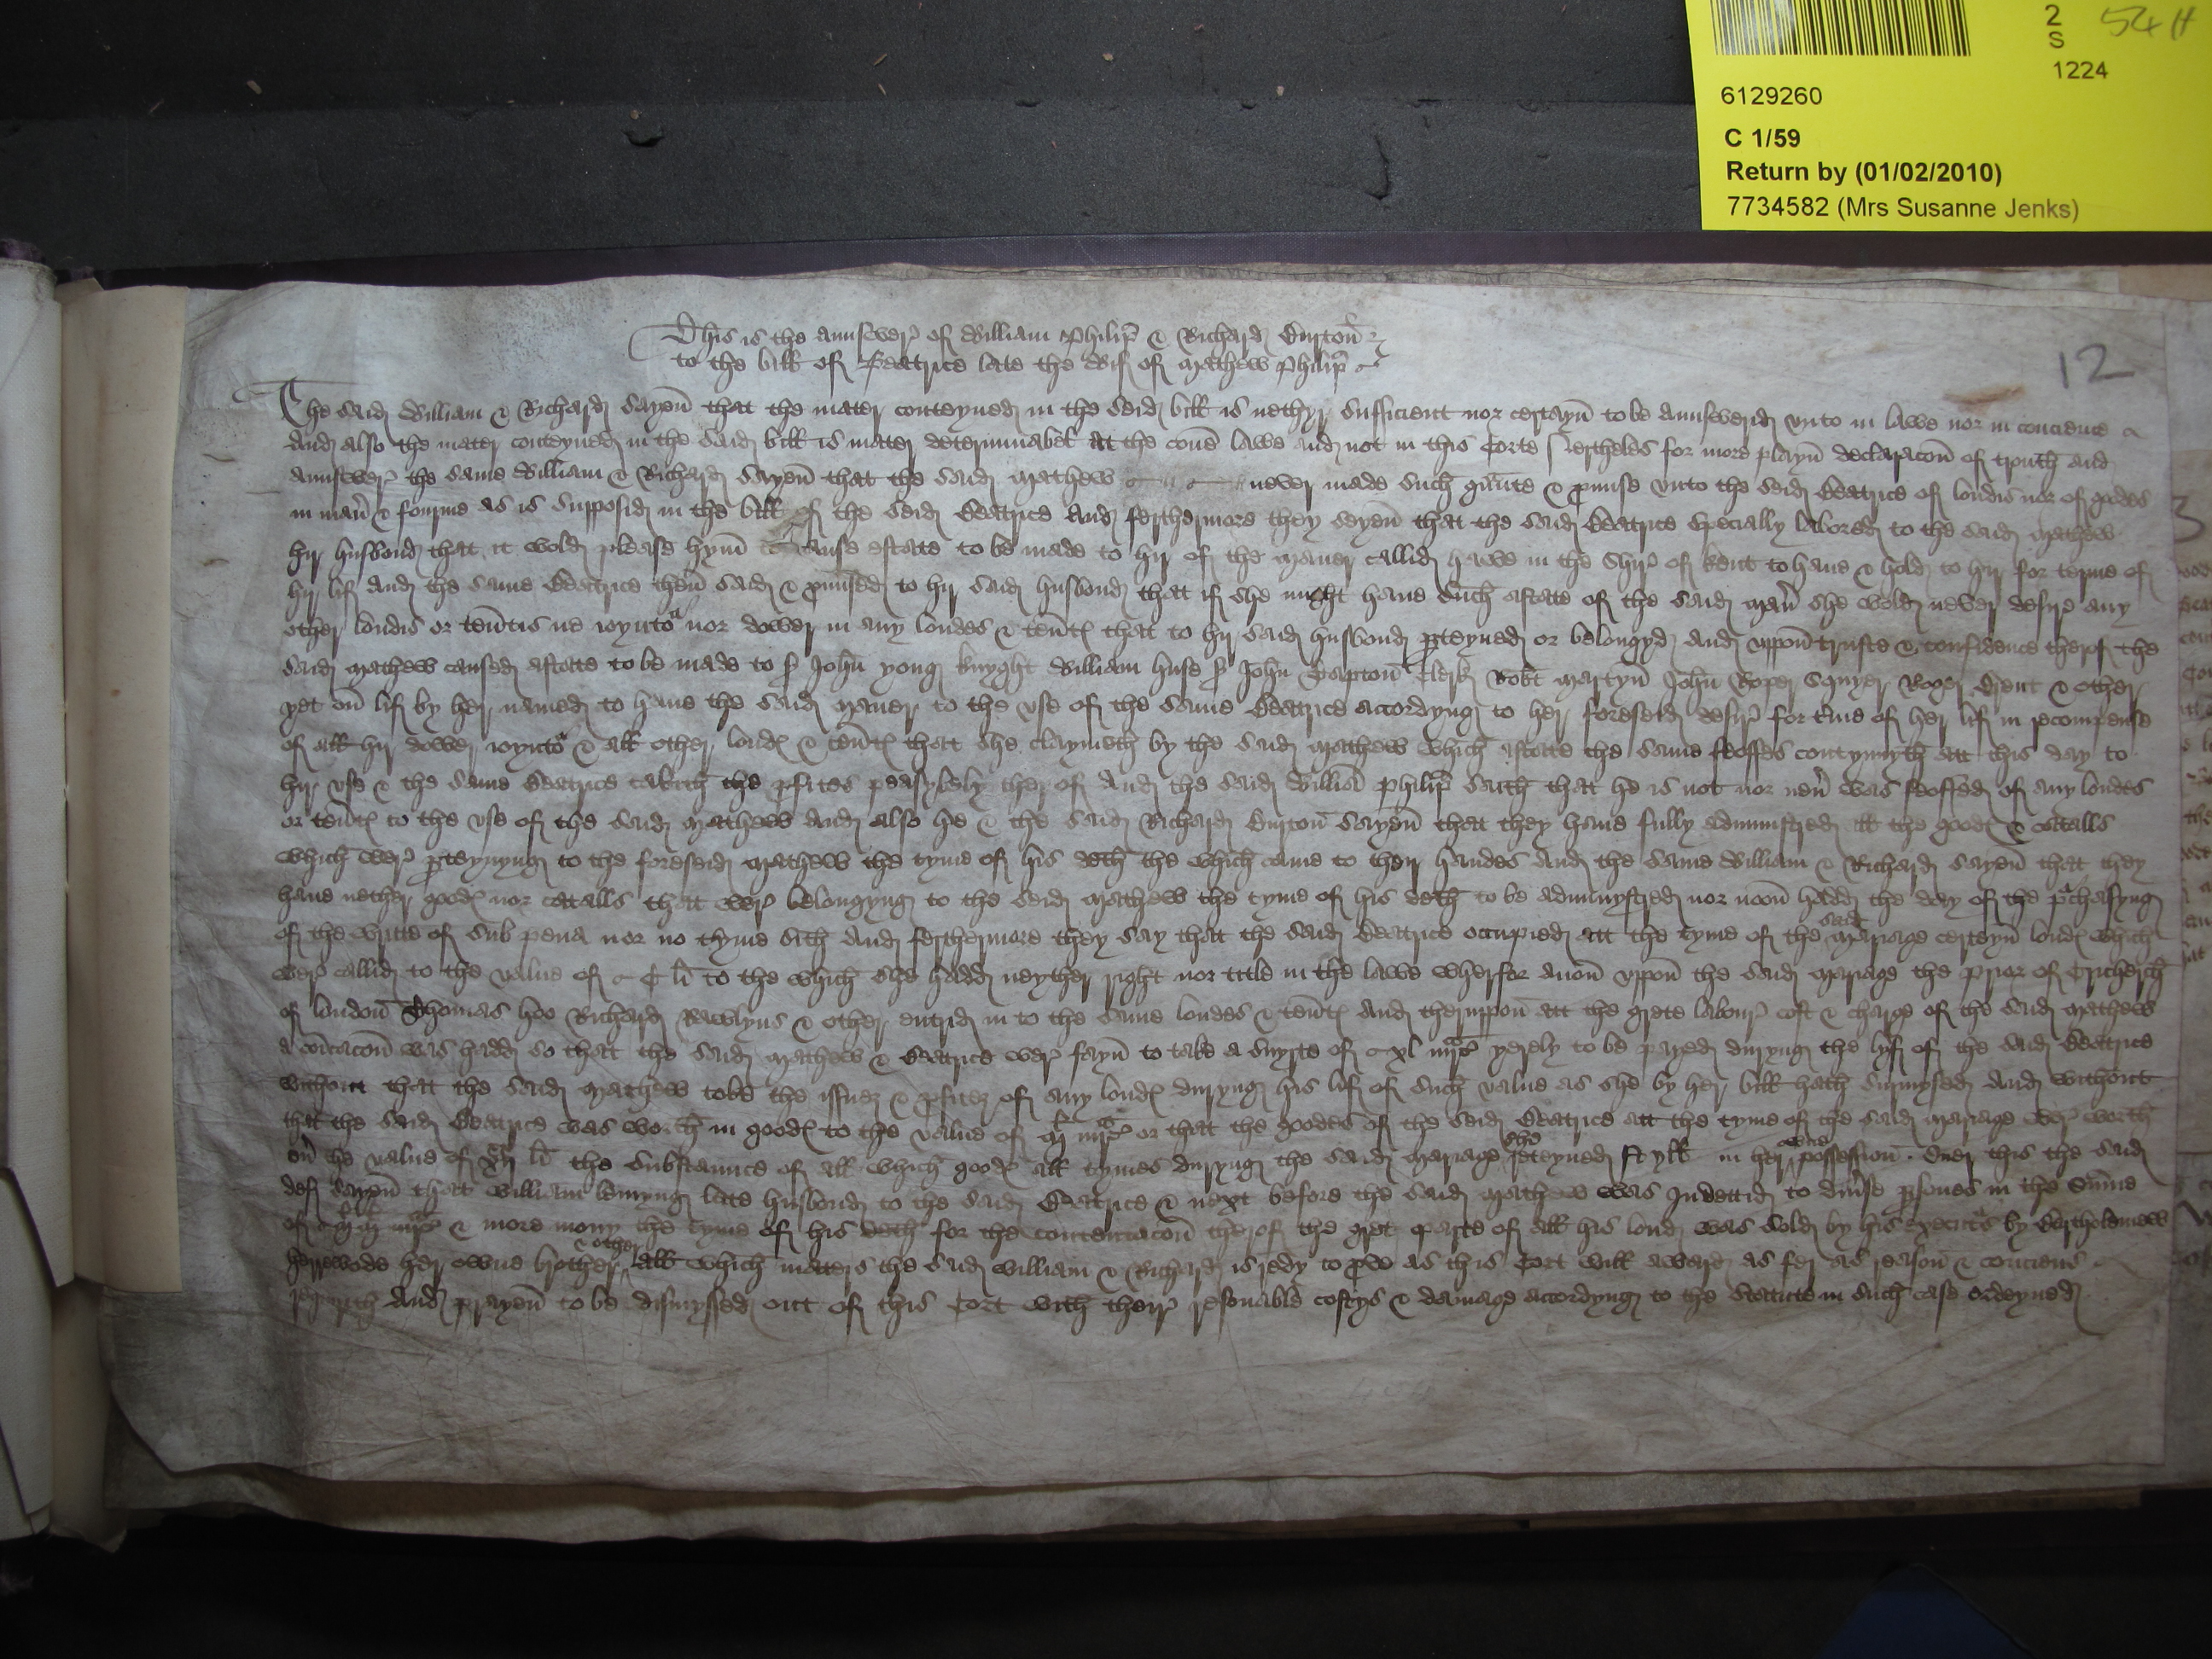 2
S
54 H
1224
6129260
C 1/59
Return by (01/02/2010)
7734582 (Mrs Susanne Jenks)
12
This is the aunswer of William Philip & Richard Burton
to the bill of Beatrice late the wif of Mathew Philip
The said William & Richard sayen that the mater conteyned in the seid bill is nethyr sufficient nor certayn to be aunswerid vnto in lawe nor in concience
And also the mater conteyned in the said bill is mater determinabel att the comen lawe and not in this Corte for more playn declaracon of trouth and
aunswer the same William & Richard sayen that the said Mathew never made such graunte & promise vnto the seid Beatrice of londis nor of godes
in maner & fourme as is supposid in the bill of the seid Beatrice And ferthermore they seyen that the said Beatrice specially labored to the said Mathew
hir husbond that it wold please hym to cause estate to be made to hir of the maner callid hawe in the Shir of kent to haue & hold to hir for terme of
hir lif And the same Beatrice then said & promised to hir said husbond that if she might haue such astate of the said maner she wold never desyr any
other londis or tentis ne ioyntor nor dower in any londes & tent that to hir said husbond perteyned or belongyd And vppon truste & confidence therof the
said Mathew caused astate to be made to sir John yong knyght William huse sir John Clerk Robt Martyn John Roper Squyer Roger Brent & other
yet on lif by her named to haue the said maner to the vse of the same Beatrice accordyng to her foreseid desyr for terme of her lif in recompense
of all hir dower ioyntor & all other lond & tent that she claymeth by the said Mathew which astate the same feoffes contynuyth att this day to
hir vse & the same Beatrice takith the profites peasybely ther of And the said William philip saith that he is not nor never was feoffed of any londes
or tent to the vse of the said Mathew And also he & the said Richard Burton sayen that they haue fully admynistred all the good & catalls
which wer perteynyng to the foreseid Mathew the tyme of his deth the which came to their handes And the same William & Richard sayen that they
haue nether good nor catalls that wer belongyng to the seid Mathew the tyme of his deth to be admynystred nor noon hadd the day of the purchasyng
of the writte of sub pena nor no tyme sith And ferthermore they say that the said Beatrice occupied att the tyme of the said mariage certeyn lond which
wer callid to the value of C li to the which she hadd neyther right nor title in the lawe wherfor anon vppon the said mariage the prior of Cricherch
of london Thomas hoo Richard Rawlyns & other entrid in to the same londes & tent And theruppon att the grete labour cost & charge of the said Mathew
a was hadd so that the said Mathew & Beatrice wer fayn to take a of xl mrc yerely to be payed duryng the lyf of the said Beatrice
without that the said Mathew toke the issuez & profitez of any lond duryng his lif of such value as she by her bill hath surmysed And without
that the said Beatrice was worth in good to the value of mrc or that the goodes of the seid Beatrice att the tyme of the said mariage wer worth
over the value of li the substaunce of all which good all tymes duryng the said mariage she reteyned styll in her owne possession Over this the said
def sayen that William lemyng late husbond to the said Beatrice & next before the said Mathew was Indettid to diverse persones in the summe
of mrc & more mony the tyme of his deth for the contentacon therof the gret parte of all his lond was sold by his executors by Bartholomew
herewode her owne brother & other All which maters the said William & Richard is redy to prove as this Cort will award as fer as reason & conciens
requirith And prayen to be dismyssed out of this Cort with their resonable costys & damage accordyng to the Statute in such case ordeyned